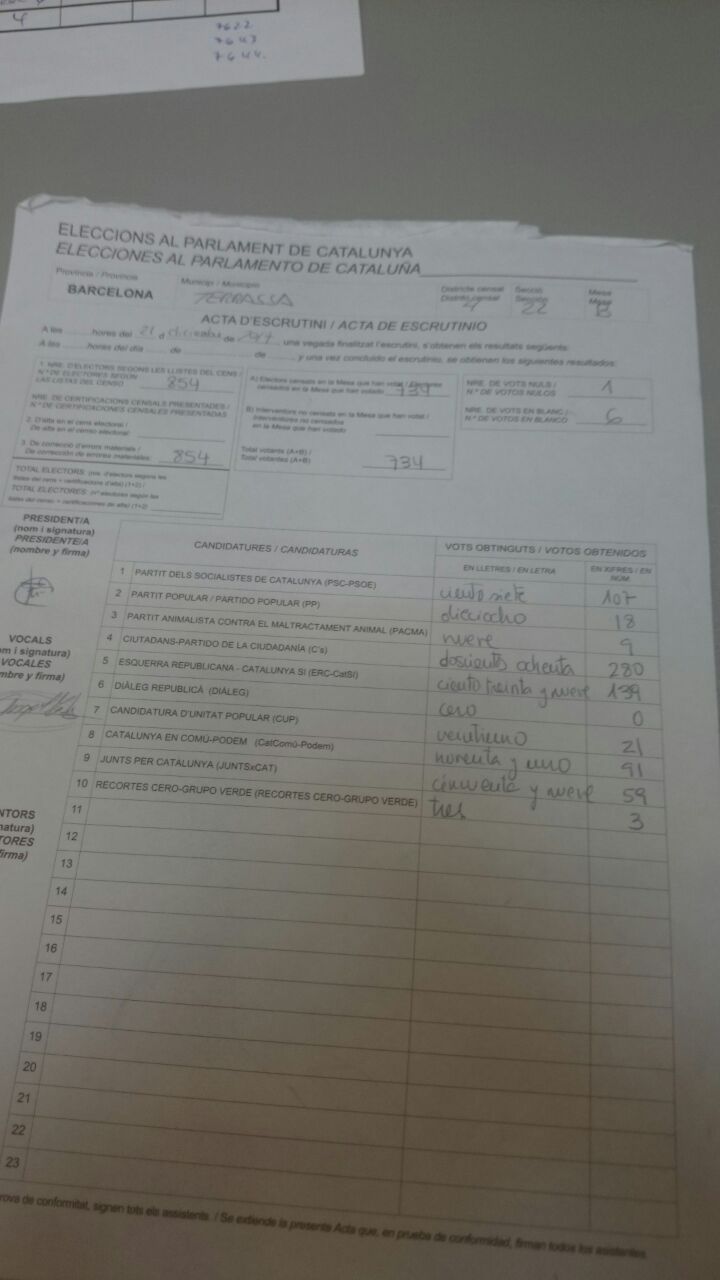 4
7622
7643
7644.
ELECCIONS AL PARLAMENT DE CATALUNYA
ELECCIONES AL PARLAMENTO DE CATALUÑA
Província / Provincia
Municipi / Municipio
Districte censal
Distrito censal
Secció
Sección
Mesa
Mesa
BARCELONA
TERRASSA
4
22
B
ACTA D'ESCRUTINI / ACTA DE ESCRUTINIO
A les ........ hores del 21 d diciembre de 2017, una vegada finalitzat l'escrutini, s'obtenen els resultats següents:
A las ........ horas del día ........ de ........ de ........ y una vez concluido el escrutinio, se obtienen los siguientes resultados:
1. NRE. D'ELECTORS SEGONS LES LLISTES DEL CENS /
N.º DE ELECTORES SEGÚN
LAS LISTAS DEL CENSO
854
NRE. DE CERTIFICACIONS CENSALS PRESENTADES /
N.º DE CERTIFICACIONES CENSALES PRESENTADAS
2. D'alta en el cens electoral /
De alta en el censo electoral:
3. De correcció d'errors materials /
De corrección de errores materiales:
854
TOTAL ELECTORS: (nre. d'electors segons les
llistes del cens + certificacions d'alta) (1+2) /
TOTAL ELECTORES: (nº electores según las
listas del censo + certificaciones de alta) (1+2)
A) Electors censats en la Mesa que han votat / Electores
censados en la Mesa que han votado
734
B) Interventors no censats en la Mesa que han votat /
Interventores no censados
en la Mesa que han votado
Total votants (A+B) /
Total votantes (A+B)
734
NRE. DE VOTS NULS /
N.º DE VOTOS NULOS
1
NRE. DE VOTS EN BLANC /
N.º DE VOTOS EN BLANCO
6
PRESIDENT/A
(nom i signatura)
PRESIDENTE/A
(nombre y firma)
VOCALS
m i signatura)
VOCALES
mbre y firma)
NTORS
natura)
TORES
firma)
CANDIDATURES / CANDIDATURAS
VOTS OBTINGUTS / VOTOS OBTENIDOS
EN LLETRES / EN LETRA
EN XIFRES / EN NÚM.
1 PARTIT DELS SOCIALISTES DE CATALUNYA (PSC-PSOE) ciento siete 107
2 PARTIT POPULAR / PARTIDO POPULAR (PP) dieciocho 18
3 PARTIT ANIMALISTA CONTRA EL MALTRACTAMENT ANIMAL (PACMA) nueve 9
4 CIUTADANS-PARTIDO DE LA CIUDADANÍA (C's) doscientos ochenta 280
5 ESQUERRA REPUBLICANA - CATALUNYA SÍ (ERC-CatSí) ciento treinta y nueve 139
6 DIÀLEG REPUBLICÀ (DIÀLEG) cero 0
7 CANDIDATURA D'UNITAT POPULAR (CUP) veintiuno 21
8 CATALUNYA EN COMÚ-PODEM (CatComú-Podem) noventa y uno 91
9 JUNTS PER CATALUNYA (JUNTSxCAT) cincuenta y nueve 59
10 RECORTES CERO-GRUPO VERDE (RECORTES CERO-GRUPO VERDE) tres 3
11
12
13
14
15
16
17
18
19
20
21
22
23
rova de conformitat, signen tots els assistents. / Se extiende la presente Acta que, en prueba de conformidad, firman todos los asistentes.